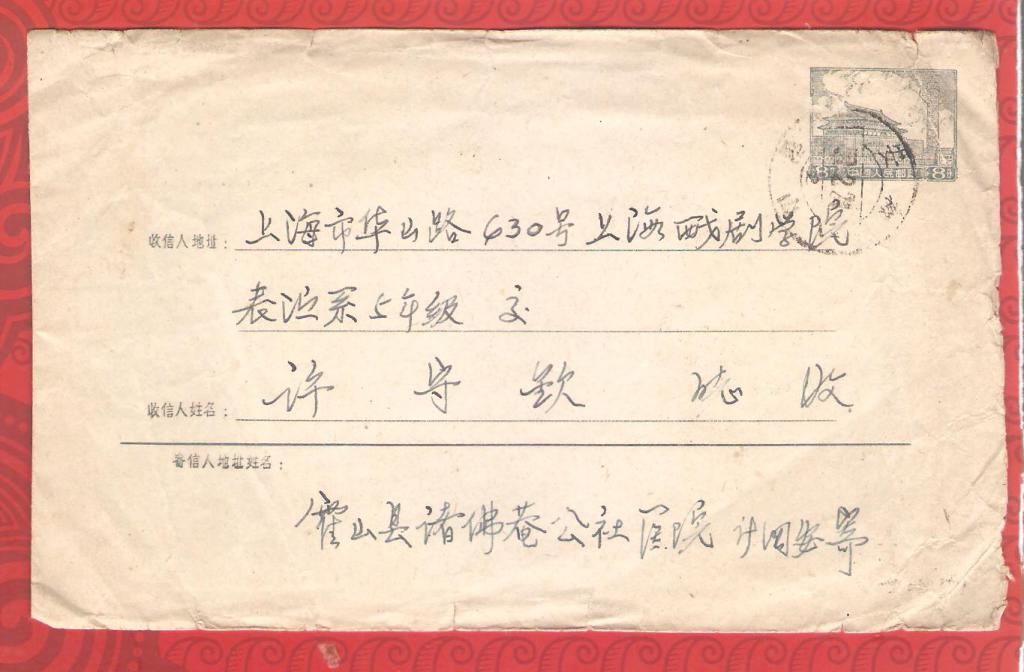 8 中国人民邮政 8
安
收信人地址： 上海市华山路630号上海戏剧学院
表演系5年级 交
收信人姓名： 许 守 钦 同志 收
寄信人地址姓名：
霍山县诸佛菴公社医院 寄